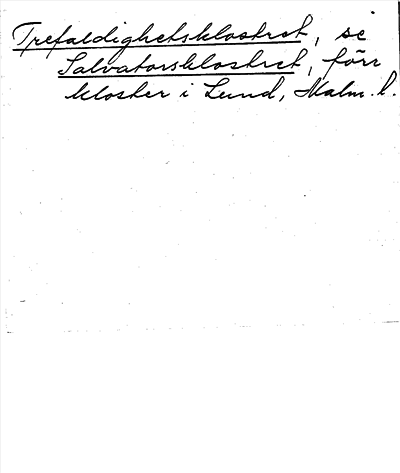 Trefaldighetsklostret, se
Salvatorsklostret, förr
kloster i Lund, Malm. l.